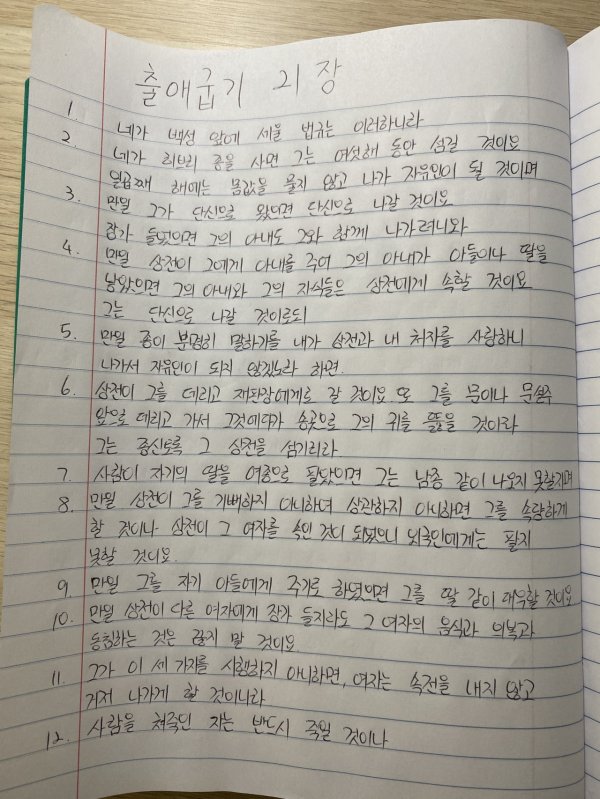 출애굽기 21장
1. 네가 백성 앞에 세울 법규는 이러하니라
2. 네가 히브리 종을 사면 그는 여섯해 동안 섬길 것이요
일곱째 해에는 몸값을 물지 않고 나가 자유인이 될 것이며
3. 만일 그가 단신으로 왔으면 단신으로 나갈 것이요
장가 들었으면 그의 아내도 그와 함께 나가려니와
4. 만일 상전이 그에게 아내를 주어 그의 아내가 아들이나 딸을
낳았으면 그의 아내와 그의 자식들은 상전에게 속할 것이요
그는 단신으로 나갈 것이로되
5. 만일 종이 분명히 말하기를 내가 상전과 내 처자를 사랑하니
나가서 자유인이 되지 않겠노라 하면.
6. 상전이 그를 데리고 재판장에게로 갈 것이요 또 그를 문이나 문설주
앞으로 데리고 가서 그것에다가 송곳으로 그의 귀를 뚫을 것이라
그는 종신토록 그 상전을 섬기리라
7. 사람이 자기의 딸을 여종으로 팔았으면 그는 남종 같이 나오지 못할지며
8. 만일 상전이 그를 기뻐하지 아니하여 상관하지 아니하면 그를 속량하게
할 것이나 상전이 그 여자를 속인 것이 되었으니 외국인에게는 팔지
못할 것이요.
9. 만일 그를 자기 아들에게 주기로 하였으면 그를 딸 같이 대우할 것이요
10. 만일 상전이 다른 여자에게 장가 들지라도 그 여자의 음식과 의복과
동침하는 것은 끊지 말 것이요.
11. 그가 이 세 가지를 시행하지 아니하면, 여자는 속전을 내지 않고
거저 나가게 할 것이니라
12. 사람을 쳐죽인 자는 반드시 죽일 것이나